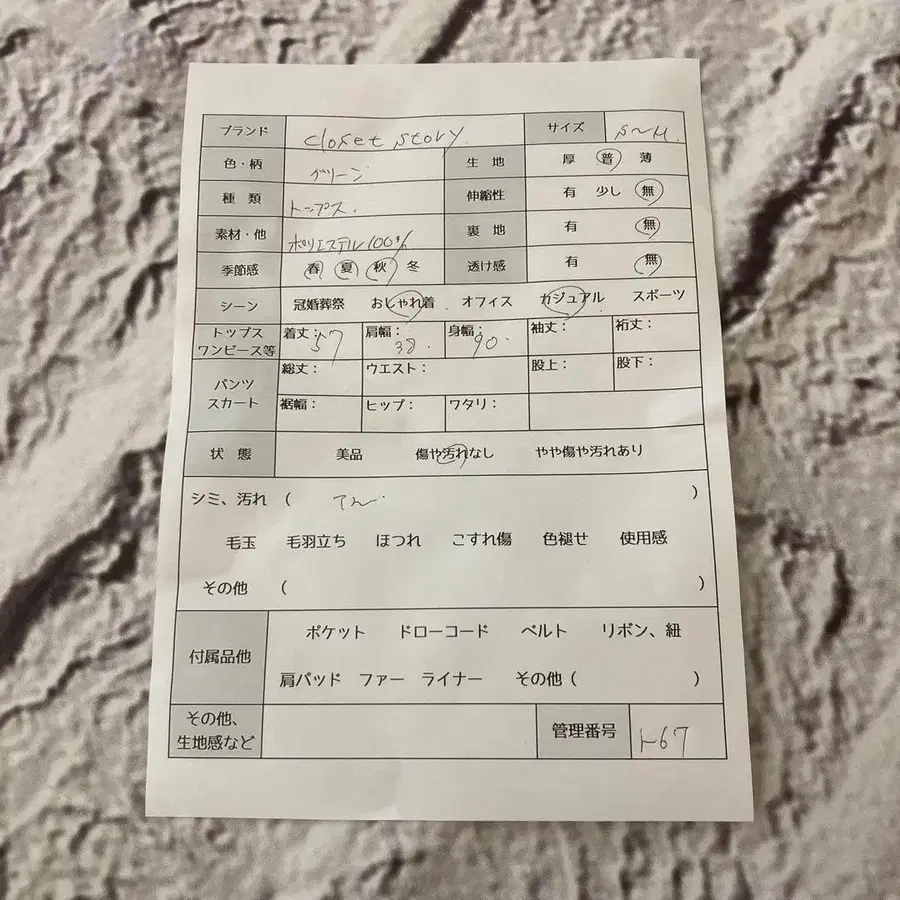 ブランド closet story. サイズ S~M.
色・柄 グリーン 生地 厚 普 薄
種類 トップス. 伸縮性 有 少し 無
素材・他 ポリエステル100% 裏地 有 無
季節感 春 夏 秋 冬 透け感 有 無
シーン 冠婚葬祭 おしゃれ着 オフィス カジュアル スポーツ
トップス
ワンピース等 着丈: 57 肩幅: 38. 身幅: 90. 袖丈: 裄丈:
パンツ
スカート 総丈: ウエスト: 股上: 股下:
裾幅: ヒップ: ワタリ:
状態 美品 傷や汚れなし やや傷や汚れあり
シミ、汚れ ( )
毛玉 毛羽立ち ほつれ こすれ傷 色褪せ 使用感
その他 ( )
付属品他 ポケット ドローコード ベルト リボン、紐
肩パッド ファー ライナー その他 ( )
その他、
生地感など 管理番号 ト67